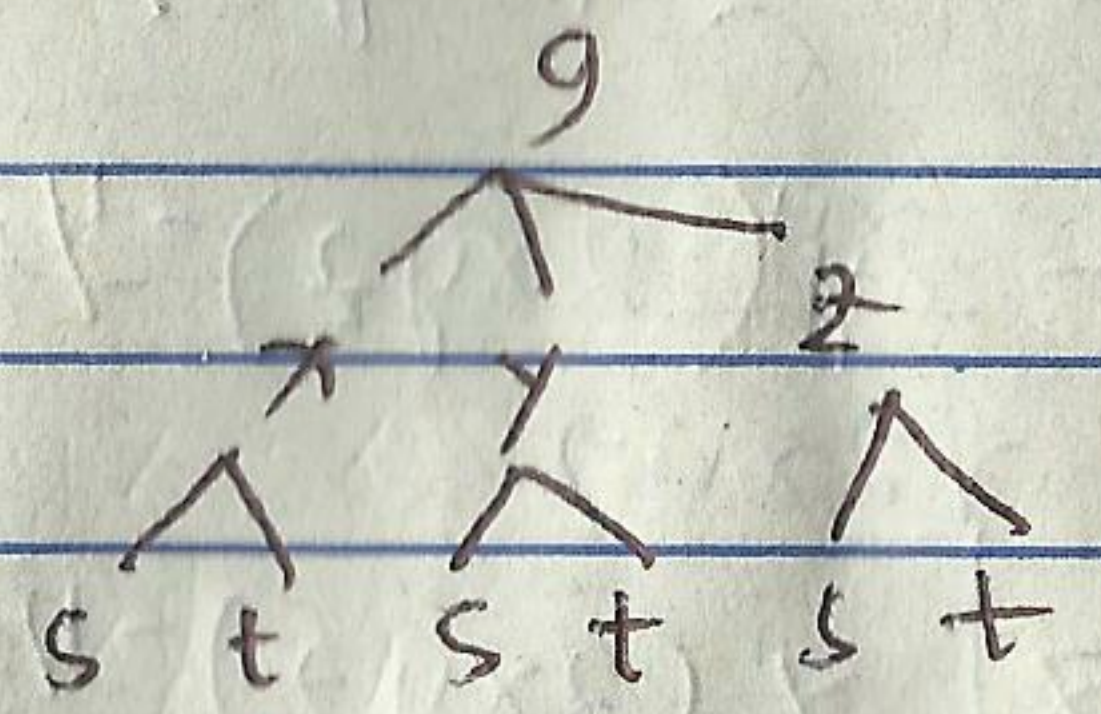 g
x y z
s t s t s t